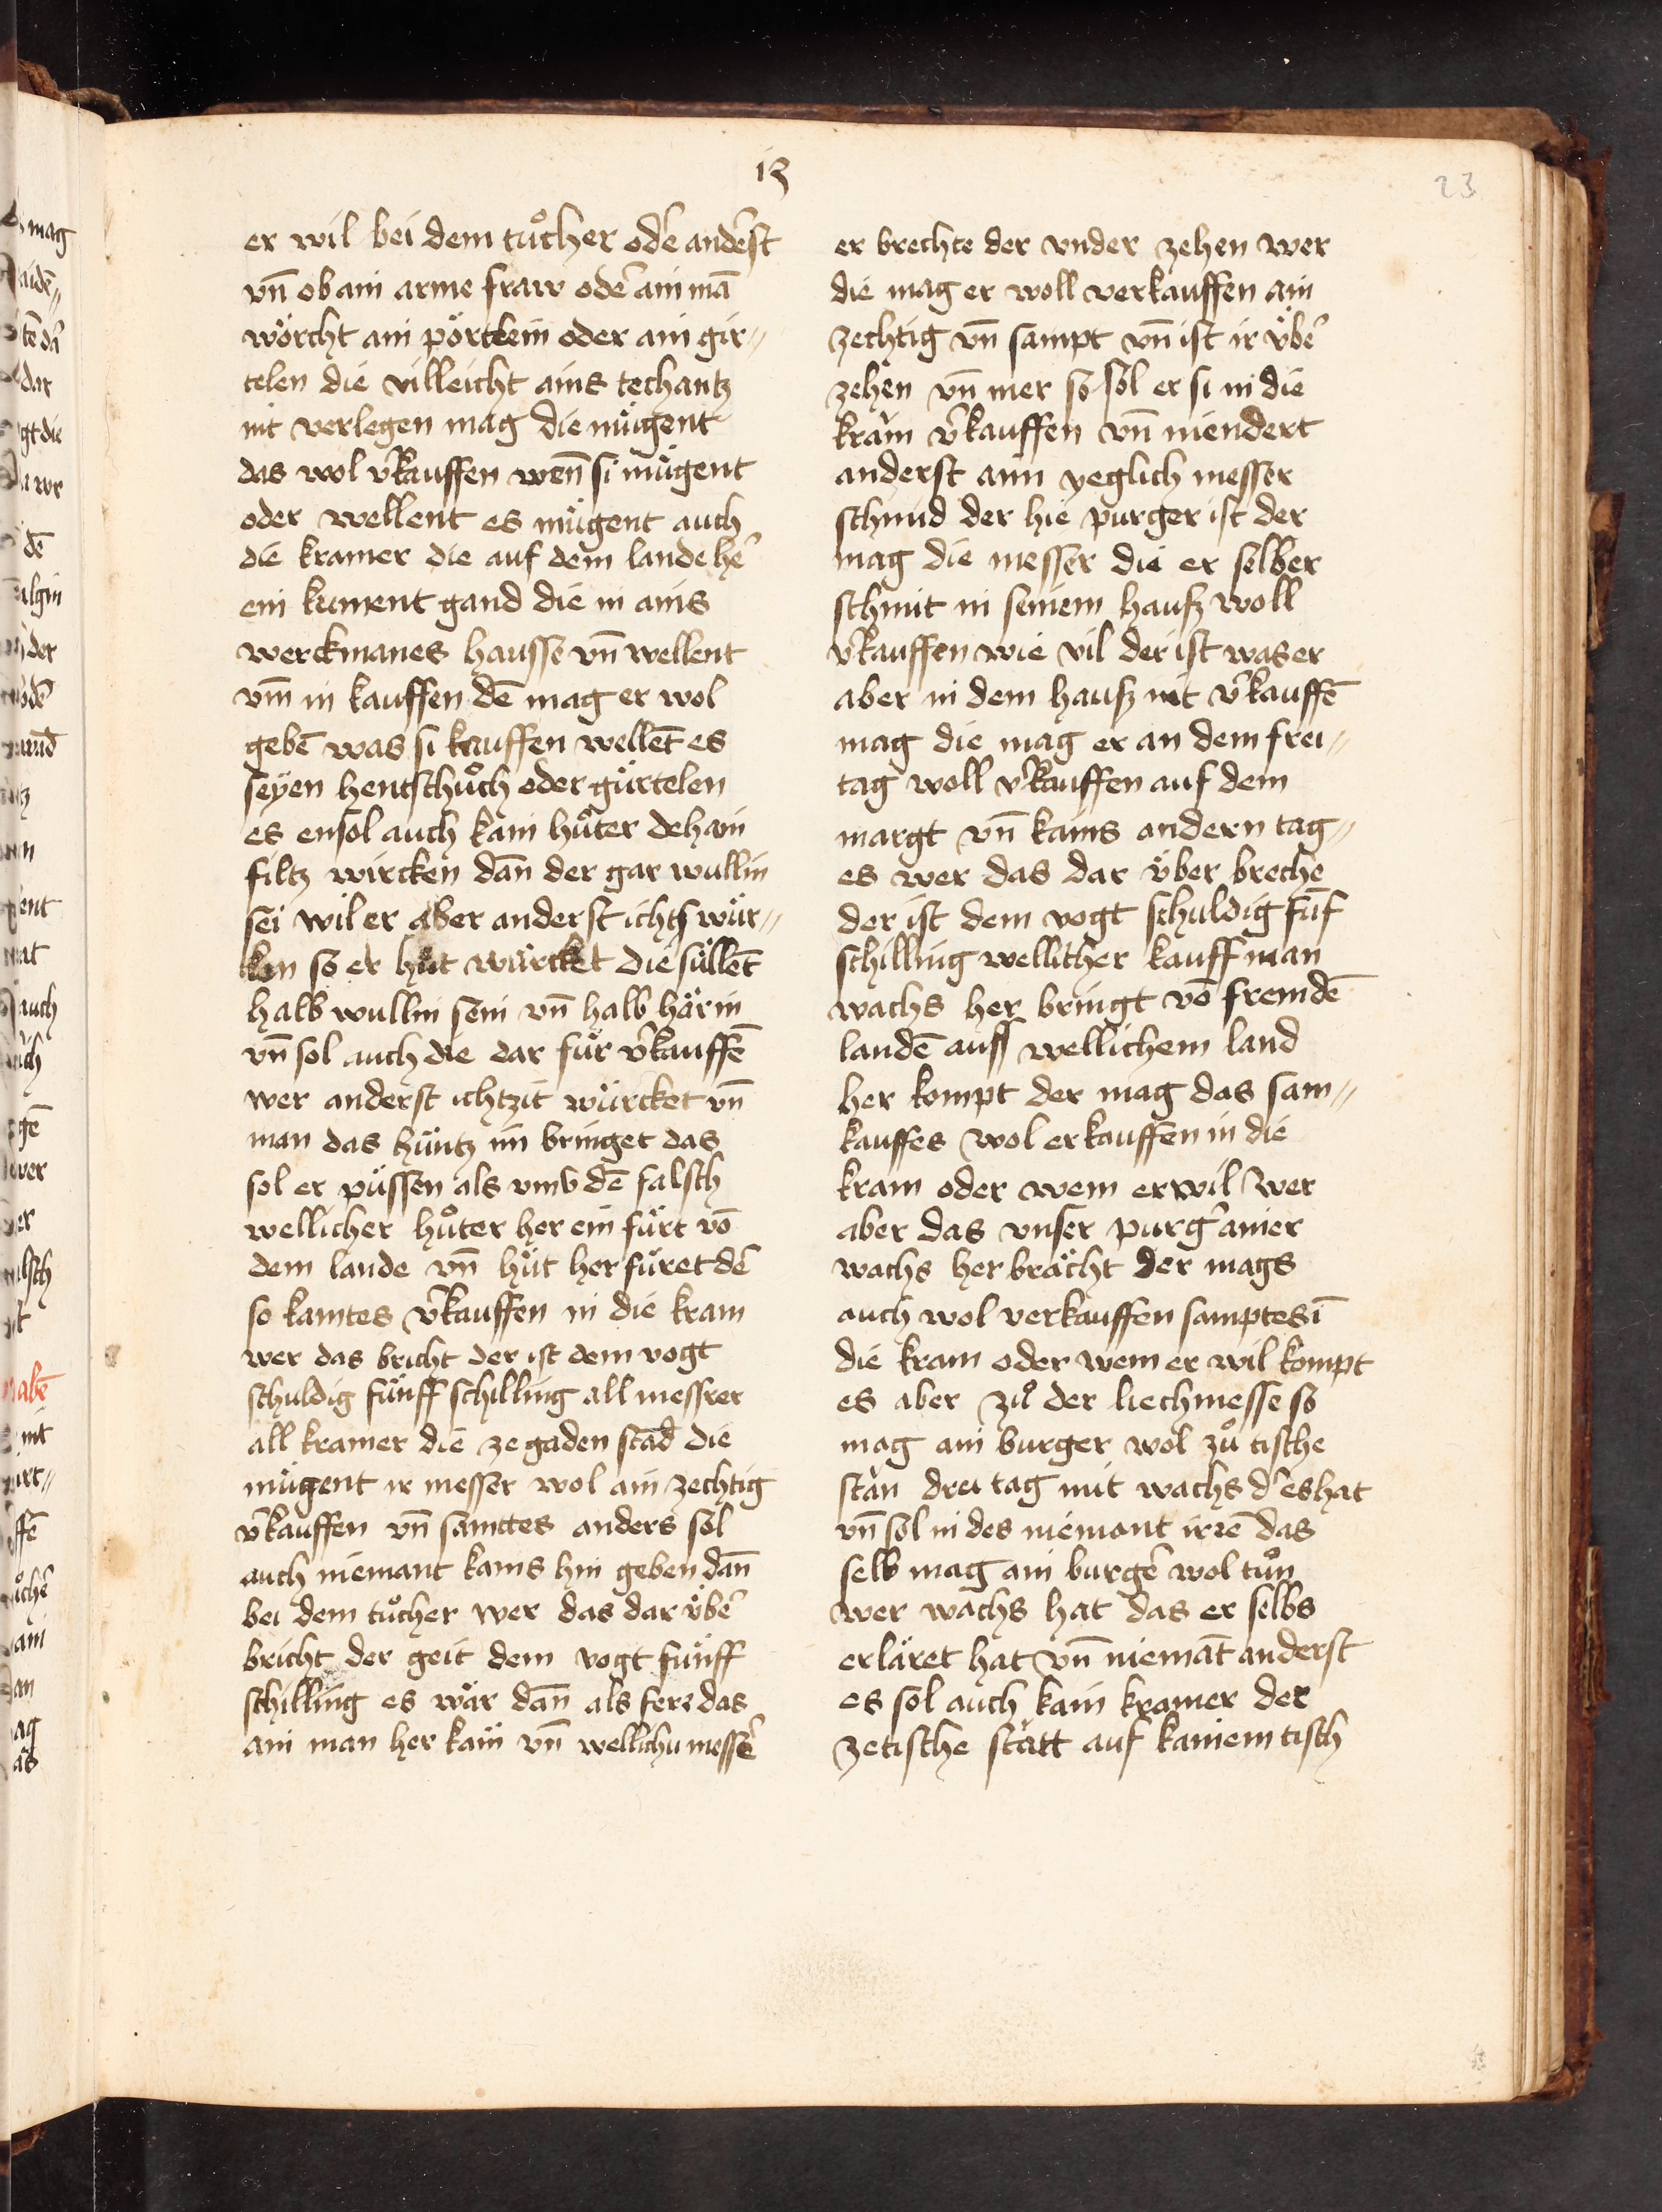 13
23
er wil bei dem tuͦcher odˀ andˀst
vn̄ ob ain arme fraw odˀ ain mā
wörcht ain pörtlein oder ain gir⸗
telen die villeicht ains techantz
nit verlegen mag die mügent
das wol vˀkauffen wen̄ si mügent
oder wellent es mügent auch
die kramer die auf dem lande hˀ
ein kument gand die in ains
werckmanes hausse vn̄ wellent
vm̄ in kauffen dē mag er wol
gebē was si kauffen wellēt es
seyen hentschuͦch oder gürtelen
es ensol auch kain huͤter dehain
filtz wircken dan̄ der gar wullin
sei wil er aber anderst ichts wür⸗
ken so er hüt würcket die süllēt
halb wullin sein vn̄ halb härin
vn̄ sol auch die dar für vˀkauffē
wer anderst ichtzit würcket vn̄
man das hüntz im bringet das
sol er püssen als vmb dē falsch
wellicher huͦter her ein fürt vō
dem lande vn̄ hüt her füret dˀ
so kamtes vˀkauffen in die kram
wer das bricht der ist dem vogt
schuldig fünff schilling all messrer
all kramer die ze gaden stād die
mügent ir messer wol ain zechtig
vˀkauffen vn̄ samttes anders sol
auch niemant kains hin geben dan̄
bei dem tuͦcher wer das dar übˀ
bricht der geit dem vogt fünff
schilling es wär dan̄ als ferr das
ain man her käm vn̄ wellichu messˀ
er brechte der vnder zehen wer
die mag er woll verkauffen ain
zechtig vn̄ sampt vn̄ ist ir übˀ
zehen vn̄ mer so sol er si in die
kram vˀkauffen vn̄ niendert
anderst ann yeglich messer
schmid der hie purger ist der
mag die messer die er selber
schmit in seinem hausz woll
vˀkauffen wie vil der ist was er
aber in dem hausz nit vˀkauffē
mag die mag er an dem frei⸗
tag woll vˀkauffen auf dem
margt vn̄ kains andern tag⸗
es wer das dar über breche
der ist dem vogt schuldig fūf
schilling wellicher kauffman
wachs her bringt vō fremdē
landē auss wellichem land
her kompt der mag das sam⸗
kauffes wol erkauffen in die
kram oder wem er wil wer
aber das vnser purgˀ ainer
wachs her brächt der mags
auch wol verkauffen samptes ī
die kram oder wem er wil kompt
es aber zuͦ der liechmesse so
mag ain burger wol zuͦ tische
stan drei tag mit wachs dˀ es hat
vn̄ sol in des niemant irrē das
selb mag ain burgˀ wol tuͦn
wer wachs hat das er selbs
erläret hat vn̄ niemāt anderst
es sol auch kain kramer der
ze tische statt auf kainem tisch